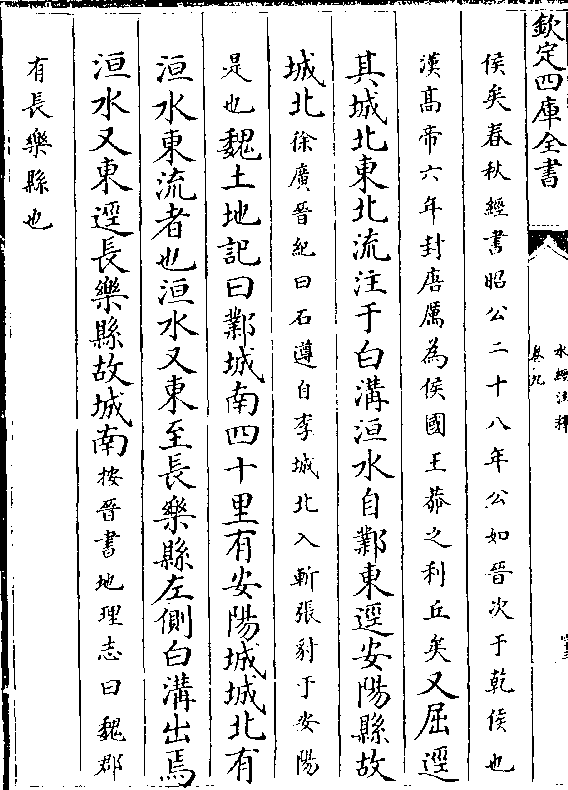 欽定四庫全書
水經注釋
卷九
侯矣春秋經書昭公二十八年公如晉次于乾侯也
漢髙帝六年封唐厲為侯國王莽之利丘矣又屈逕
其城北東北流注于白溝洹水自鄴東逕安陽縣故
城北徐廣晉紀曰石遵自李城北入斬張豺于安陽
是也魏土地記曰鄴城南四十里有安陽城城北有
洹水東流者也洹水又東至長樂縣左側白溝出焉
洹水又東逕長樂縣故城南按晉書地理志曰魏郡
有長樂縣也